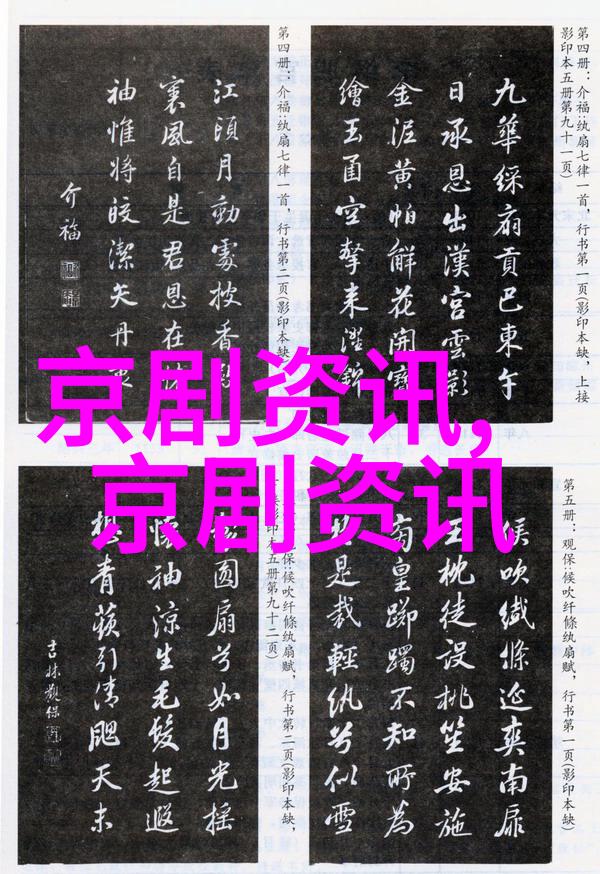 第四册：介福：纨扇七律一首，行书第一页(影印本缺，上接
影印本五册第九十一页)
九華綵扇貢巴東午
日承恩出漢宮雲影
金泥黄帕鮮花開寶
繪玉函空擎来溼錦
第四册：介福：纨扇七律一首，行书第二页(影印本缺)
江頭月動處披香
裏風自是君恩在
袖惟将皎潔矢丹
介福
京剧资讯,
京剧资讯
第五册：观保：候吹纤絛纨扇赋，行书第一页(影印本缺)
候吹纎絛延爽南扉
玉枕徒设桃笙安施
南皇躑躅不知所為
是裁輕纨兮似雪
保：候吹纤絛纨扇赋，行书第二页(影印本缺，
影印本五册第九十二页)
圆扇兮如月光摇
懷袖涼生毛髮起遐
想青蘋引清颸天末
吉林觀保